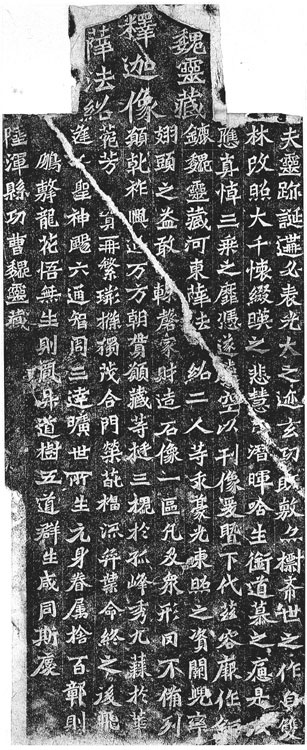 魏靈藏
釋迦像
薛法紹
夫靈跡誕遘必表光大之迹玄功既敷亦標希世之作自雙
林改照大千懷綴暎之悲慧潛暉唅生銜道慕之痛是以
應真悼三乘之靡憑遂空以刊像爰暨下代茲容厥作鉅
鏕魏靈藏河東薛法紹二人等求豪光東照之資闕兜率
翅頭之益敢輒罄家財造石像一區凡及眾形罔不備列
願乾祚興延万方朝貫願藏等挺三槐於孤峰秀九蕀於華
菀芳再繁荊條獨茂合門榮葩福流奕葉命終之後飛
逢聖神颺六通智周三達曠世所生元身眷屬捨百鄣則
鵬擊龍花悟無生則鳳昇道樹五道群生咸同斯慶
陸渾縣功曹魏靈藏